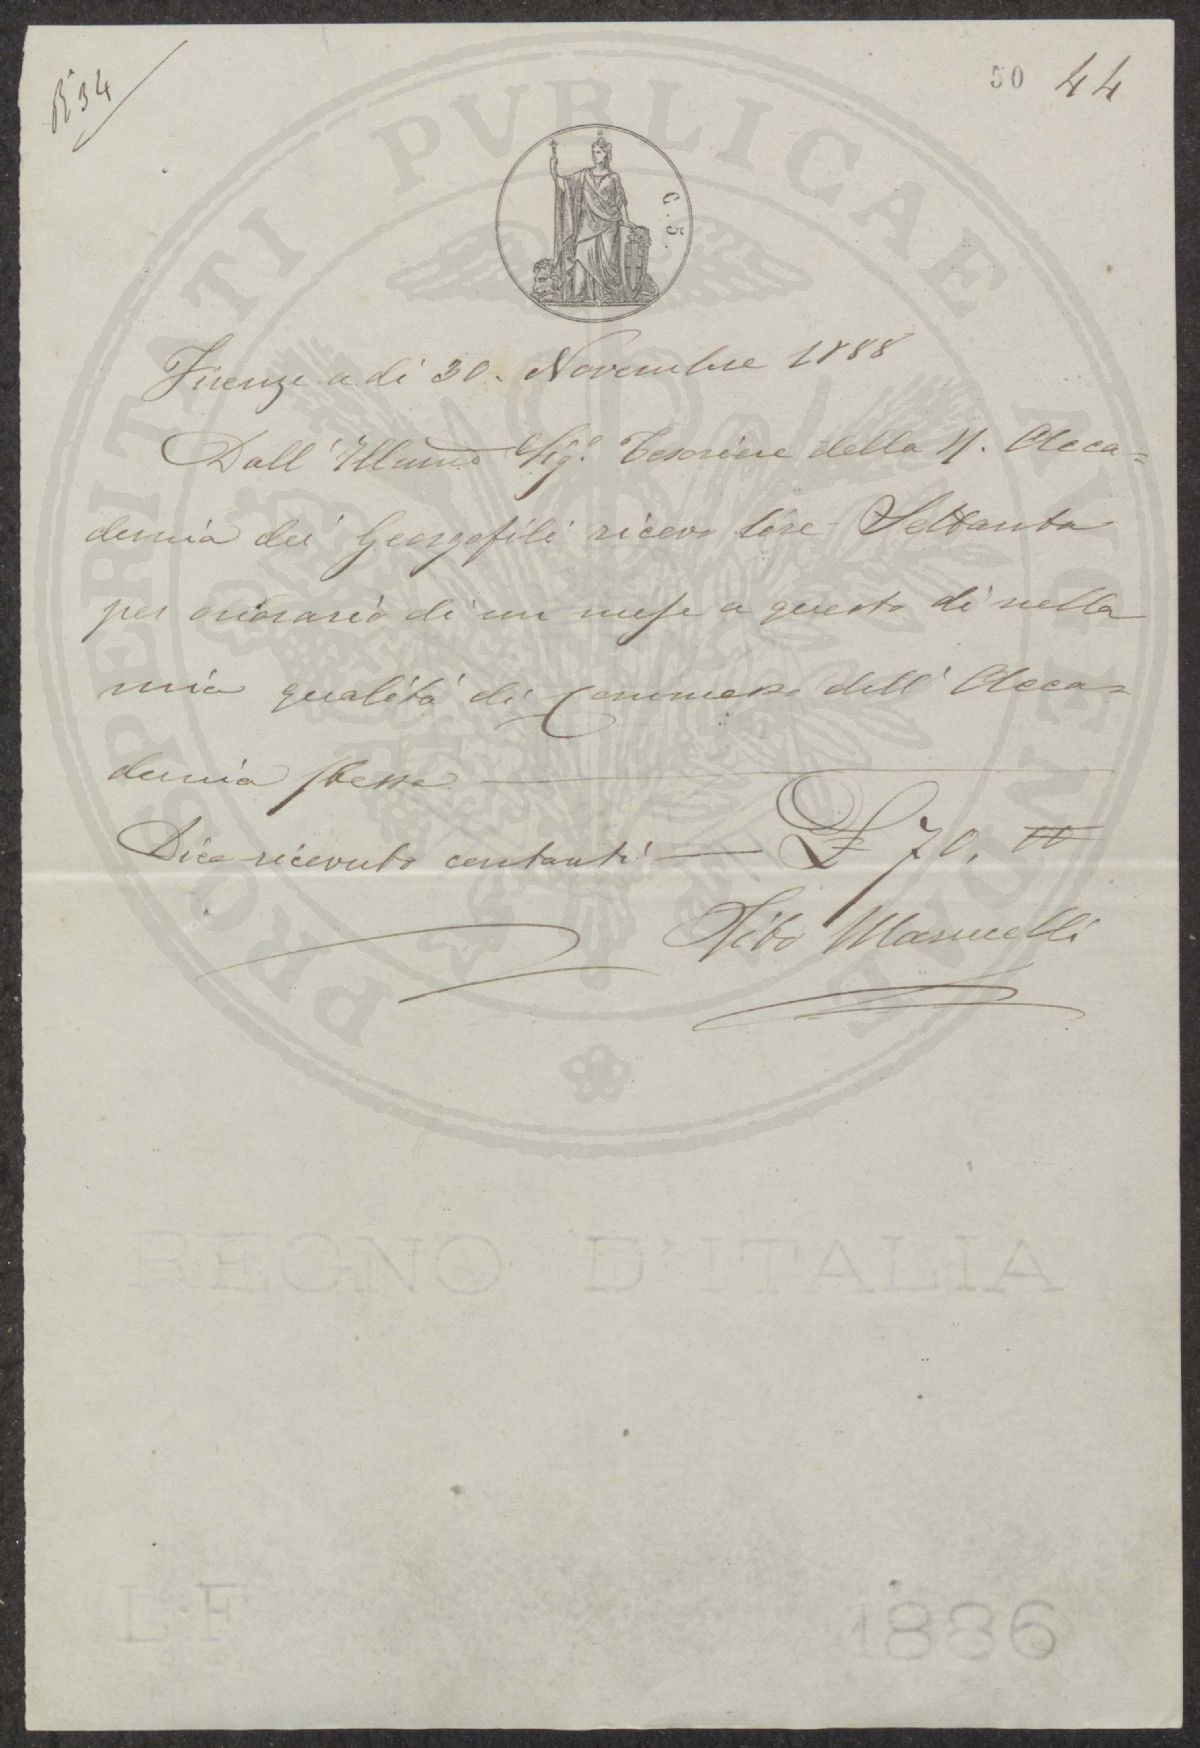 R.e 34
50 44
C. 5.
PROSPERITATI PVBLICAE AVGENDAE
Firenze a dì 30. Novembre 1888
Dall' Illumo Sig.e Tesoriere della R. Acca=
demia dei Georgofili ricevo lire Settanta
per onorario di un mese a questo dì nella
mia qualità di Commesso dell' Acca=
demia stessa
Dico ricevuto contanti £ 70. 00
Marucelli
REGNO D'ITALIA
L. F 1886